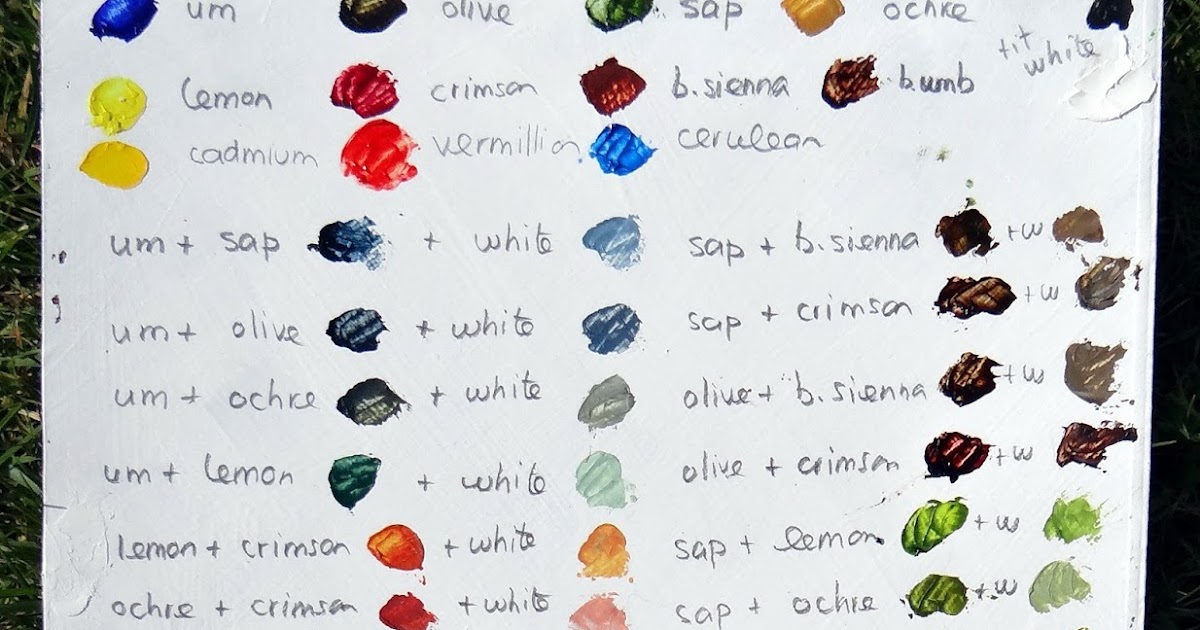 um olive sap ochre
tit white
lemon crimson b.sienna b.umb
cadmium vermillion cerulean
um + sap + white
um + olive + white
um + ochre + white
um + lemon + white
lemon + crimson + white
ochre + crimson + white
sap + b.sienna + w
sap + crimson + w
olive + b.sienna + w
olive + crimson + w
sap + lemon + w
sap + ochre + w